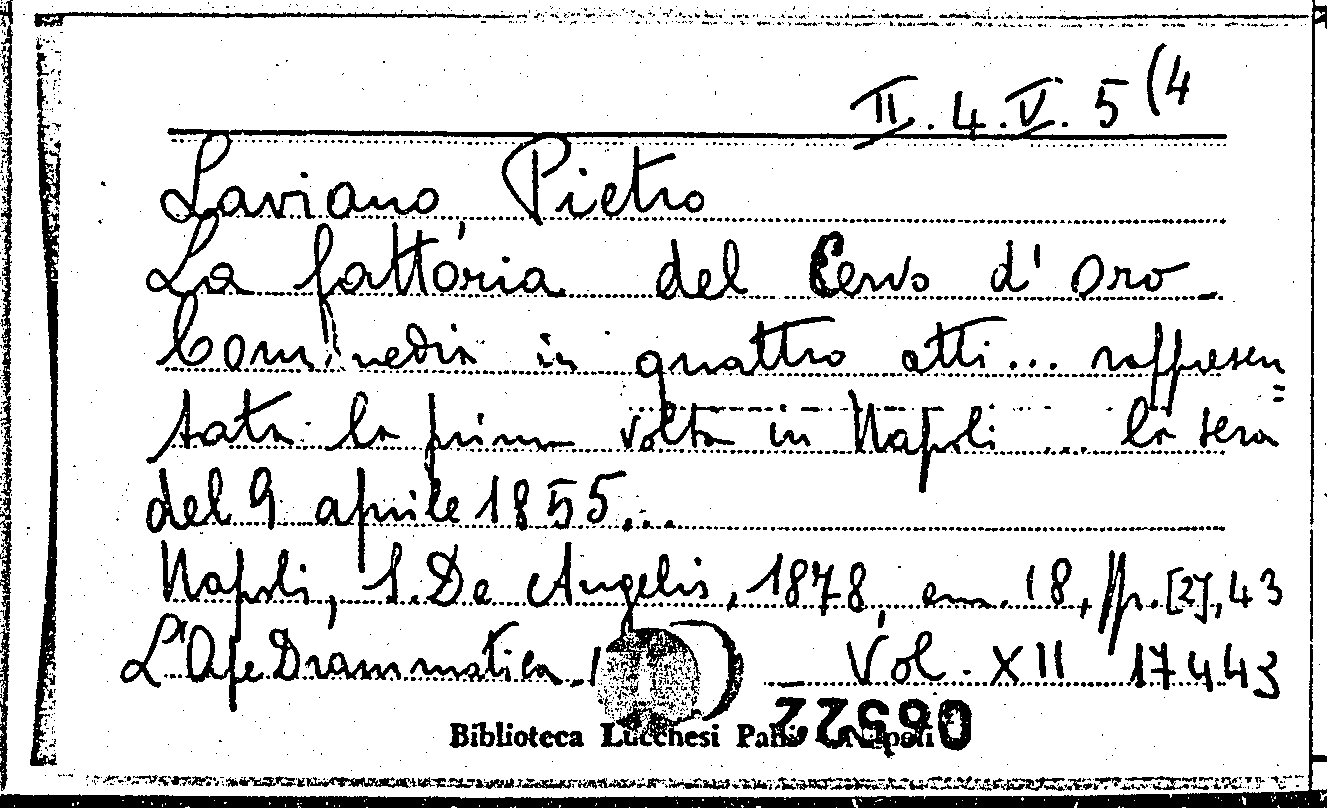 II. 4. V. 5 (4
Laviano, Pietro
La fattoria del Cervo d'oro
Commedia in quattro atti... rappresen=
tata la prima volta in Napoli ... la sera
del 9 aprile 1855...
Napoli, S. De Angelis, 1878, cm. 18, pp. [2], 43
L'Ape Drammatica. Vol. XII 17443
06522
Biblioteca Lucchesi Palli Napoli